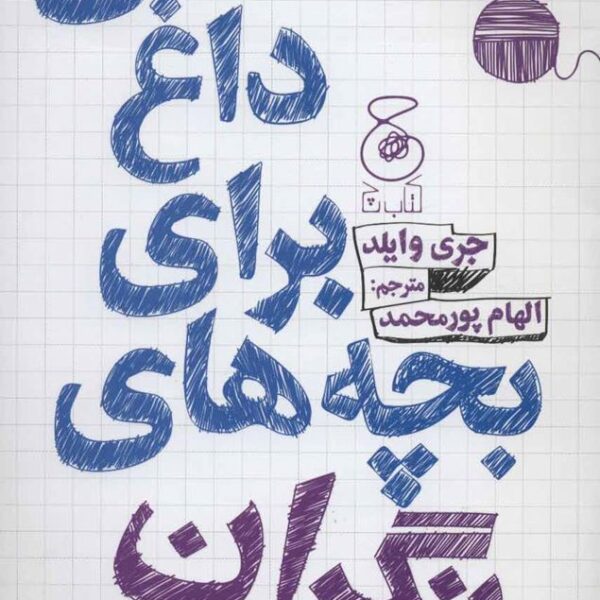 داغ
برای
بچه‌های
نگران
کتاب چ
جری وایلد
مترجم:
الهام پورمحمد